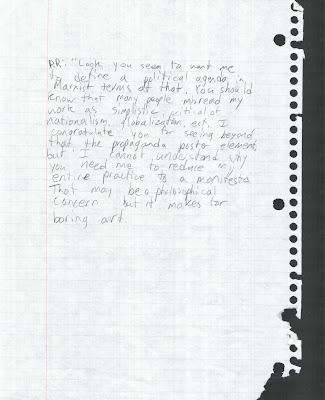 P.R.: "Look you seem to want me
to define a political agenda in
Marxist terms at that. You should
know that many people misread my
work as simplistic critical of
nationalism, globalization, ect. I
congratulate you for seeing beyond
that the propaganda poster element,
but I cannot understand why
you need me to reduce my
entire practice to a manifesto.
That may be a philosophical
concern but it makes for
boring art.